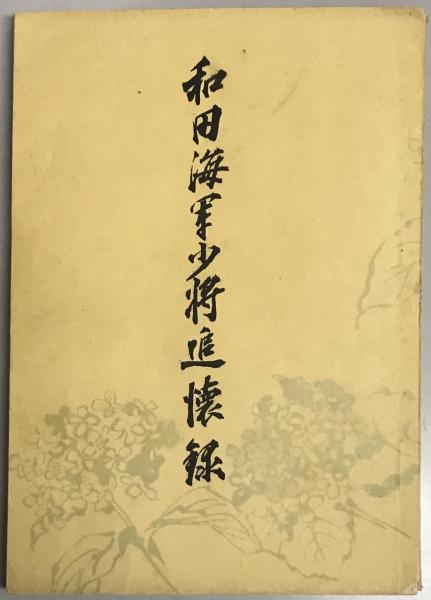 和田海軍少将追懐録